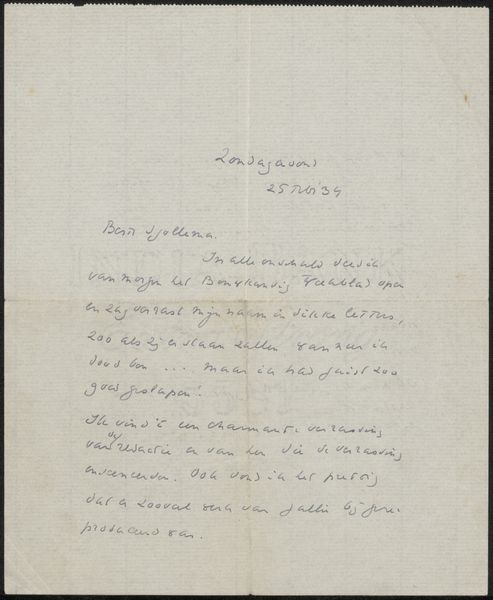 Zondagavond
25 '34
Beste Sjollema.
In alle onschuld deed ik
van morgen het Bouwkundig Weekblad open
en zag verrast mijn naam in dikke letters,
zoo als zij er staan zullen wanneer ik
dood ben .... maar ik had juist zoo
goed geslapen!
Ik vind 't een charmante verrassing
van de redactie en van hen die de verrassing
ensceneerden. Ook vond ik het prettig
dat er zooveel werk van jullie bij gere-
produceerd was.